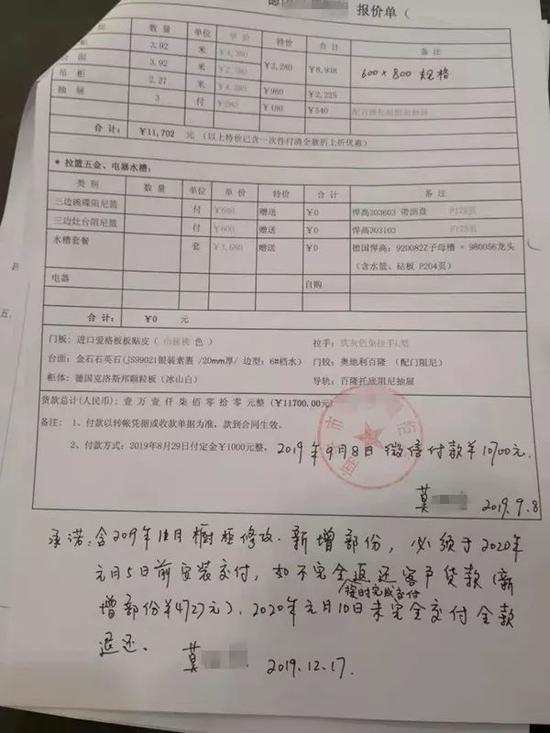 报价单（
数 量 单位 单 价 特价 合 计 备 注
3.92 米 ¥4,380
台 面 3.92 米 ¥2,280 ¥8,938 600×800 规格
吊 柜 2.27 米 ¥980 ¥2,225
抽 屉 3 付 ¥180 ¥540
合 计： ¥11,702 元 (以上特价已含一次性付清全款折上折优惠)
* 拉篮五金、电器水槽：
类 别 数 量 单位 单 价 特价 合 计 备 注
三边碗碟阻尼篮 付 ¥680 赠送 ¥0 悍高303603 带滴盘 P175页
三边灶台阻尼篮 付 ¥600 赠送 ¥0 悍高303103 P175页
水槽套餐 套 ¥3,680 赠送 ¥0 德国悍高：920082Z子母槽 × 980056龙头
(含水篮、砧板 P204页)
电器 自购
合 计： ¥0 元
门板：进口爱格板板贴皮（ 色） 拉手：
台面：金石石英石(JS99021银装素裹 /20mm厚/ 边型：6#档水) 门铰：奥地利百隆 (配门阻尼)
柜体：德国克洛斯邦颗粒板（冰山白） 导轨：百隆托底阻尼抽屉
货款总计(人民币)：壹 万 壹 仟 柒 佰 零 拾 零 元整（¥11700.00元）
备注： 1、付款以转帐凭据或收款单据为准，款到合同生效。
2、付款方式：2019年8月29日付定金¥1000元整。 2019年9月8日 微信付款¥10700元.
莫 2019.9.8
承诺：含209年11月橱柜修改.新增部份，必须于2020年
元月5日前安装交付，如不完全退还客户货款（新
按时完成交付
增部份¥4727元）、2020年元月10日未完全交付全款
退还.
莫 2019.12.17.